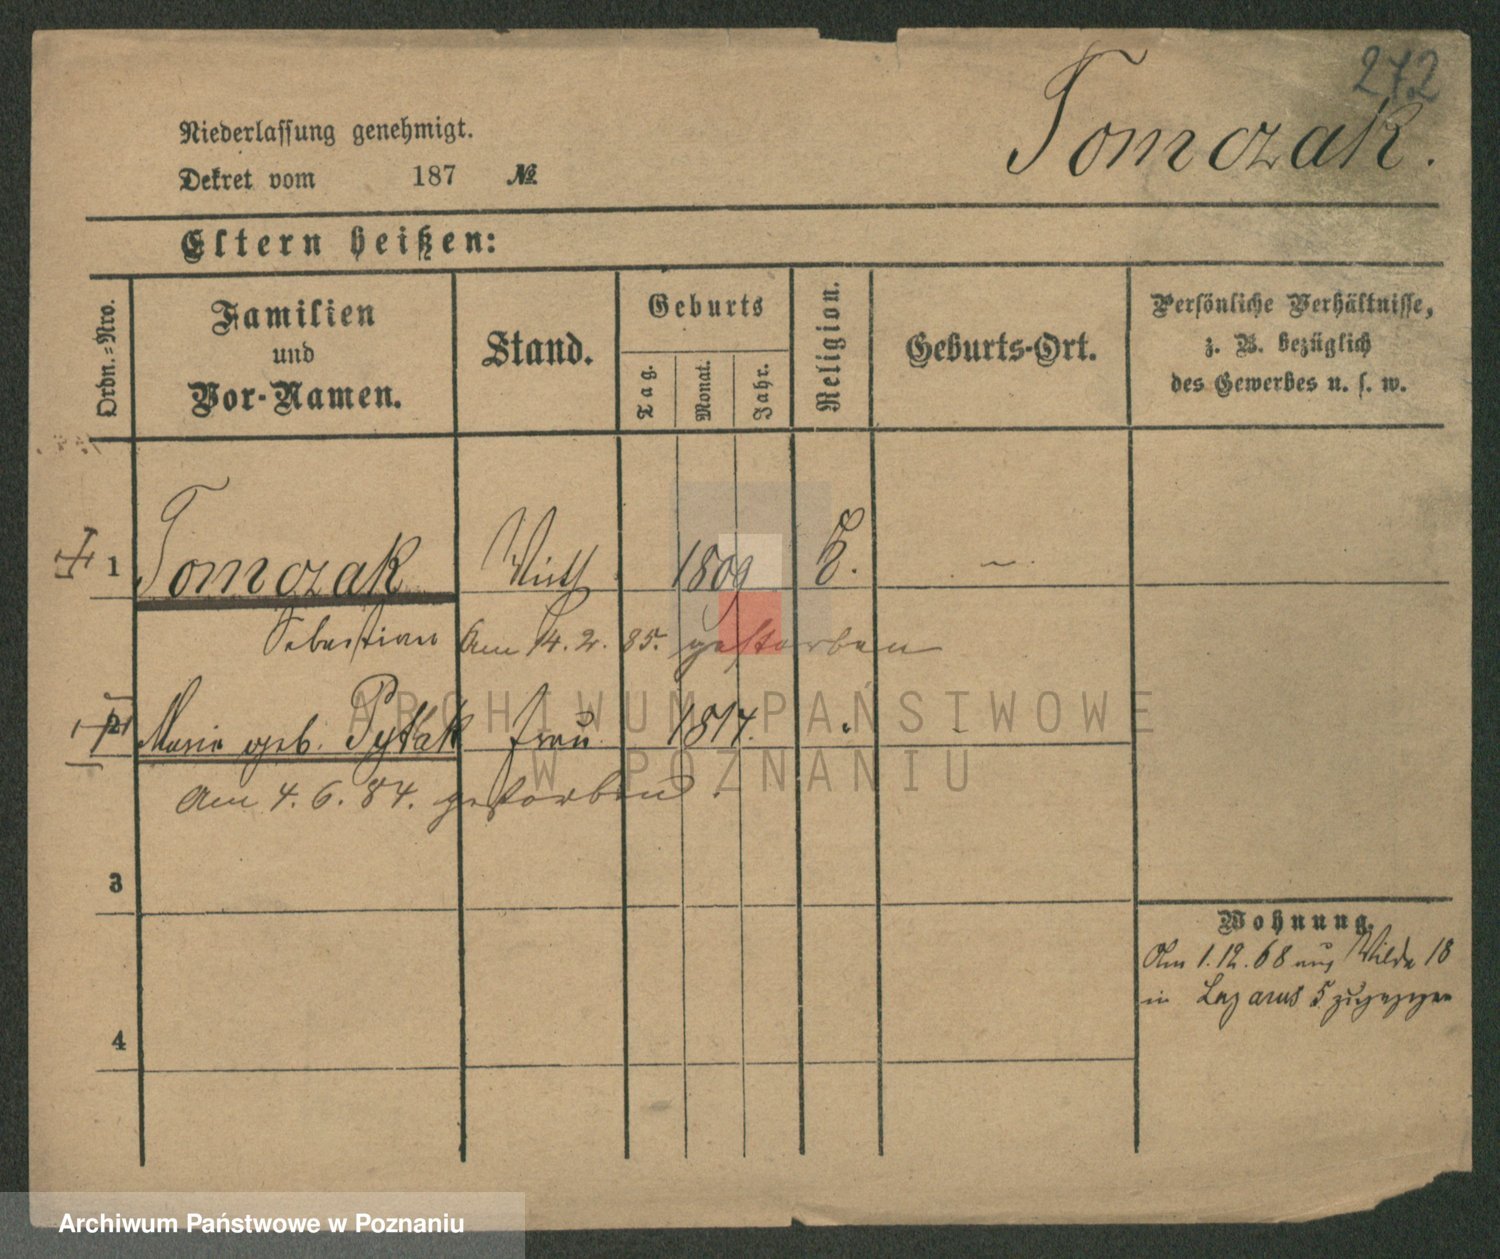 272
Tomczak.
Niederlassung genehmigt.
Dekret vom 187 №
Eltern heißen:
Ordn.=Nro.
Familien
und
Vor-Namen.
Stand.
Geburts
Tag.
Monat.
Jahr.
Religion.
Geburts-Ort.
Persönliche Verhältnisse,
z. B. bezüglich
des Gewerbes u. s. w.
1 Tomczak Wirth 1809 –
Sebastian Am 14. 2. 85. gestorben
2 Marie geb. Pytlak Frau 1817. "
Am 4. 6. 84. gestorben.
3
4
Wohnung.
Am 1. 12. 68 aus Wilda 18
in Lazarus 5 zugezogen
ARCHIWUM PAŃSTWOWE
W POZNANIU
Archiwum Państwowe w Poznaniu